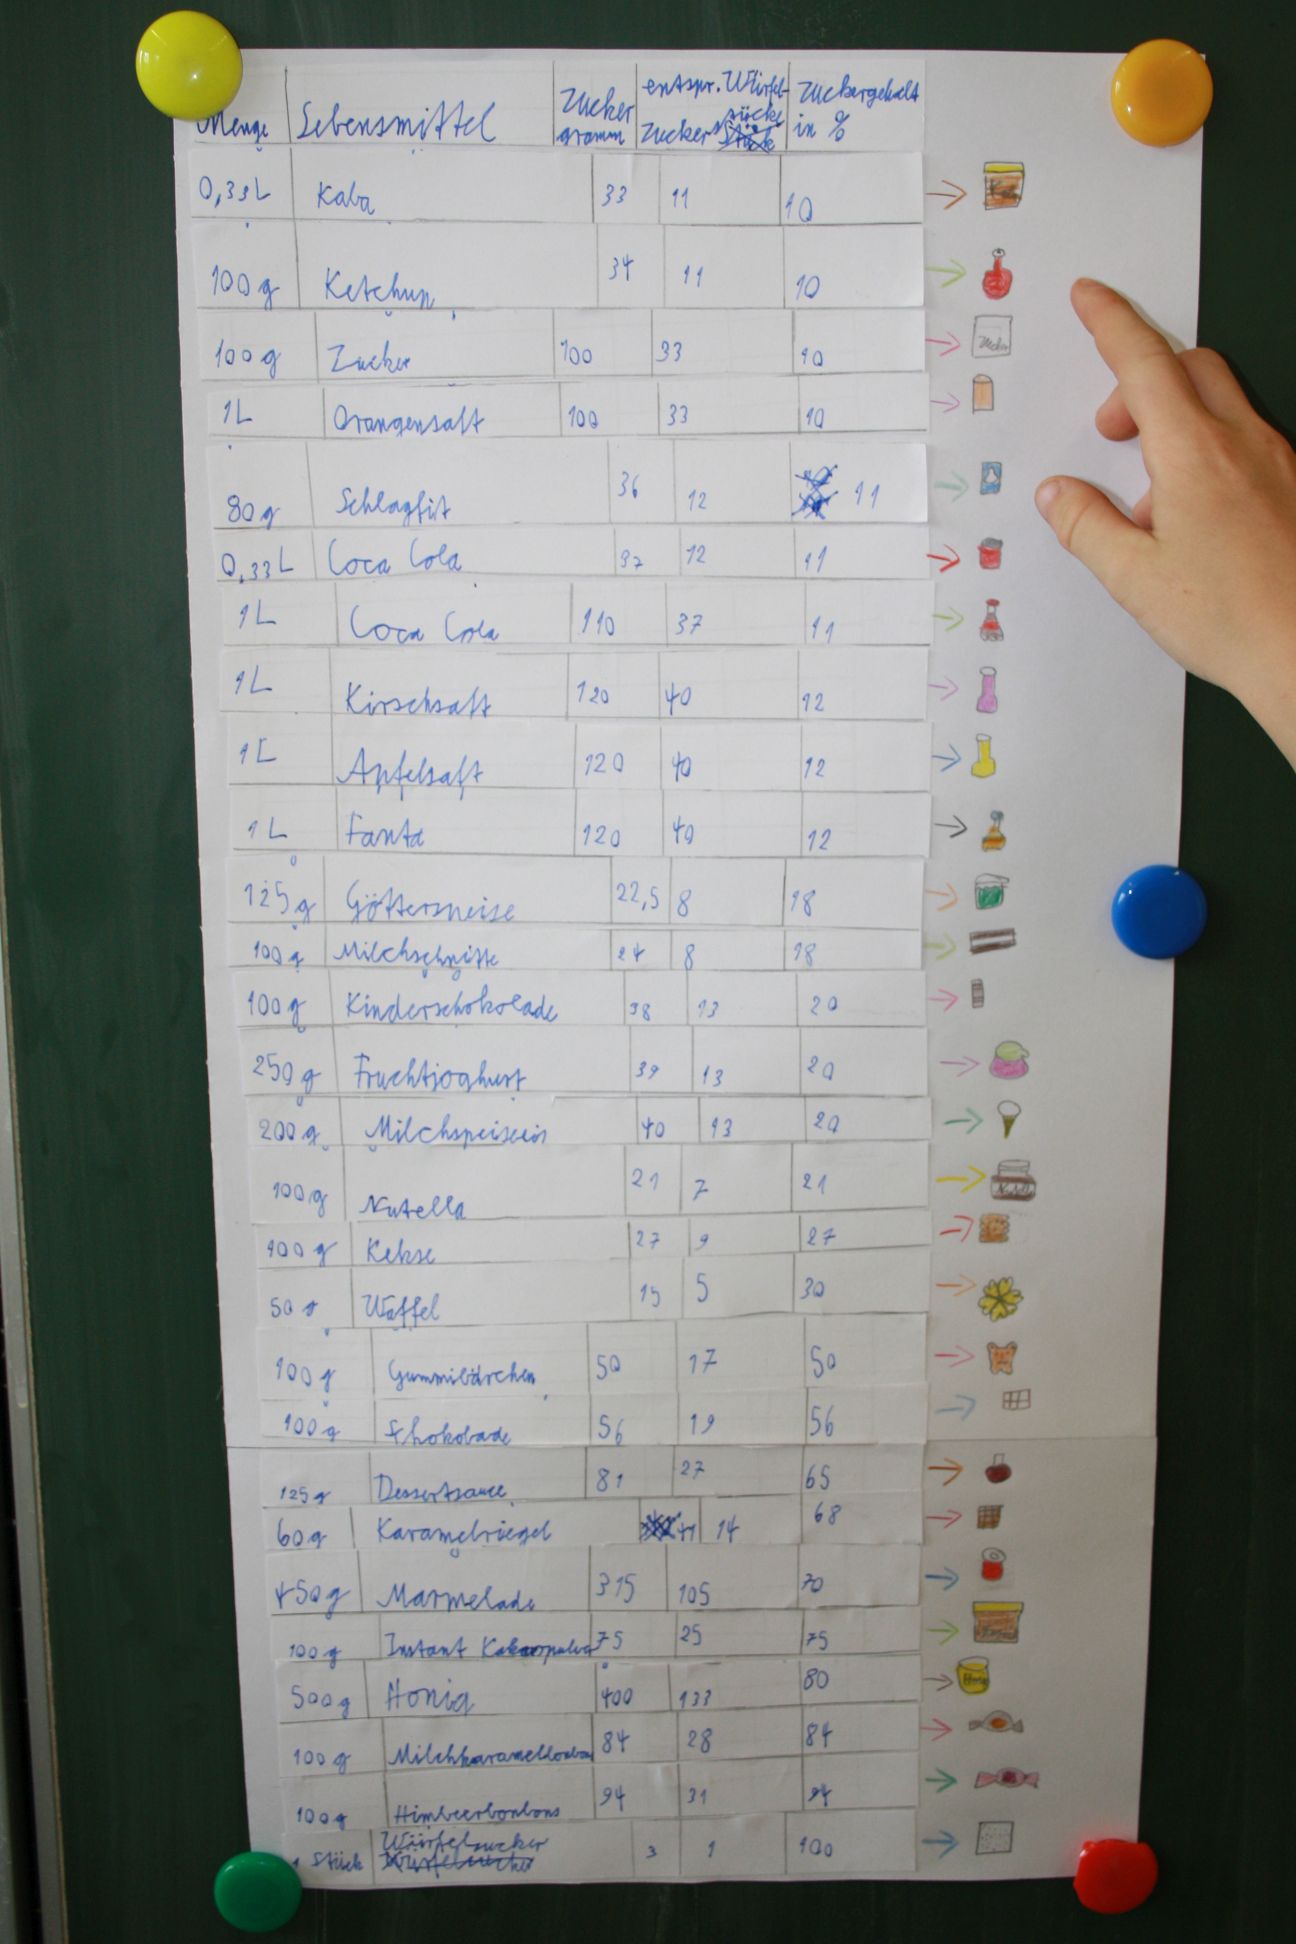 Menge Lebensmittel Zucker gramm entspr. Würfel- zucker stücke Zuckergehalt in %
0,33L Kaba 33 11 10
100g Ketchup 34 11 10
100g Zucker 100 33 10 Zucker
1L Orangensaft 100 33 10
80g Schlagfit 36 12 11
0,33L Coca Cola 37 12 11
1L Coca Cola 110 37 11
1L Kirschsaft 120 40 12
1L Apfelsaft 120 40 12
1L Fanta 120 40 12
125g Götterspeise 22,5 8 18
100g Milchschnitte 24 8 18
100g Kinderschokolade 38 13 20
250g Fruchtjoghurt 39 13 20
200g Milchspeiseeis 40 13 20
100g Nutella 21 7 21
100g Kekse 27 9 27
50g Waffel 15 5 30
100g Gummibärchen 50 17 50
100g Schokolade 56 19 56
125g Dessertsauce 81 27 65
60g Karamelriegel 41 14 68
450g Marmelade 315 105 70
100g Instant Kakaopulver 75 25 75
500g Honig 400 133 80
100g Milchkaramellbonbons 84 28 84
100g Himbeerbonbons 94 31 94
1 Stück Würfelzucker 3 1 100